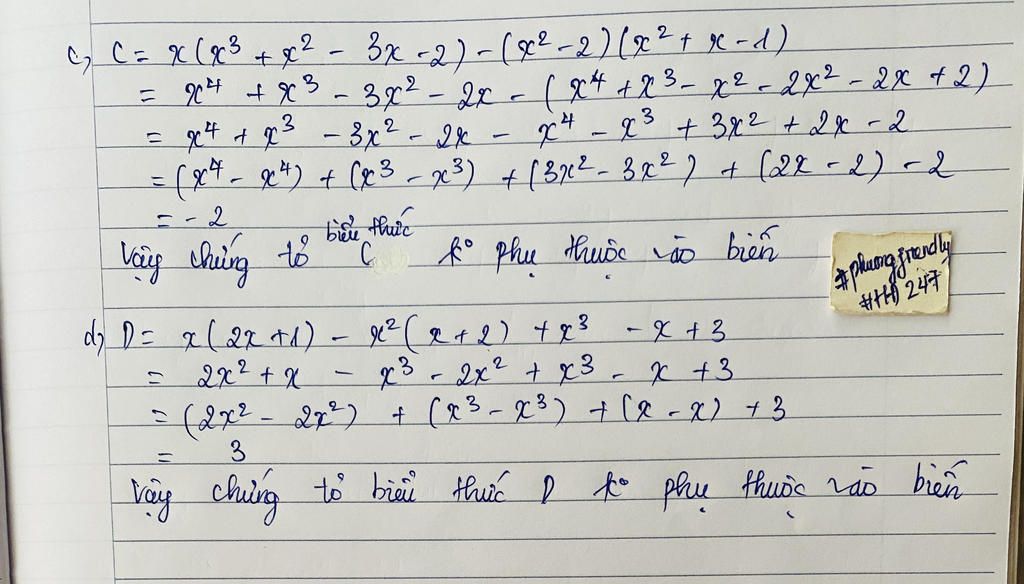 c, C = x(x³ + x² - 3x - 2) - (x² - 2)(x² + x - 1)
= x⁴ + x³ - 3x² - 2x - (x⁴ + x³ - x² - 2x² - 2x + 2)
= x⁴ + x³ - 3x² - 2x - x⁴ - x³ + 3x² + 2x - 2
= (x⁴ - x⁴) + (x³ - x³) + (3x² - 3x²) + (2x - 2) - 2
= - 2
biểu thức
Vậy chứng tỏ C k° phụ thuộc vào biến
#phuongfriendly
#HĐ 247
d, D = x(2x + 1) - x²(x + 2) + x³ - x + 3
= 2x² + x - x³ - 2x² + x³ - x + 3
= (2x² - 2x²) + (x³ - x³) + (x - x) + 3
= 3
Vậy chứng tỏ biểu thức D k° phụ thuộc vào biến